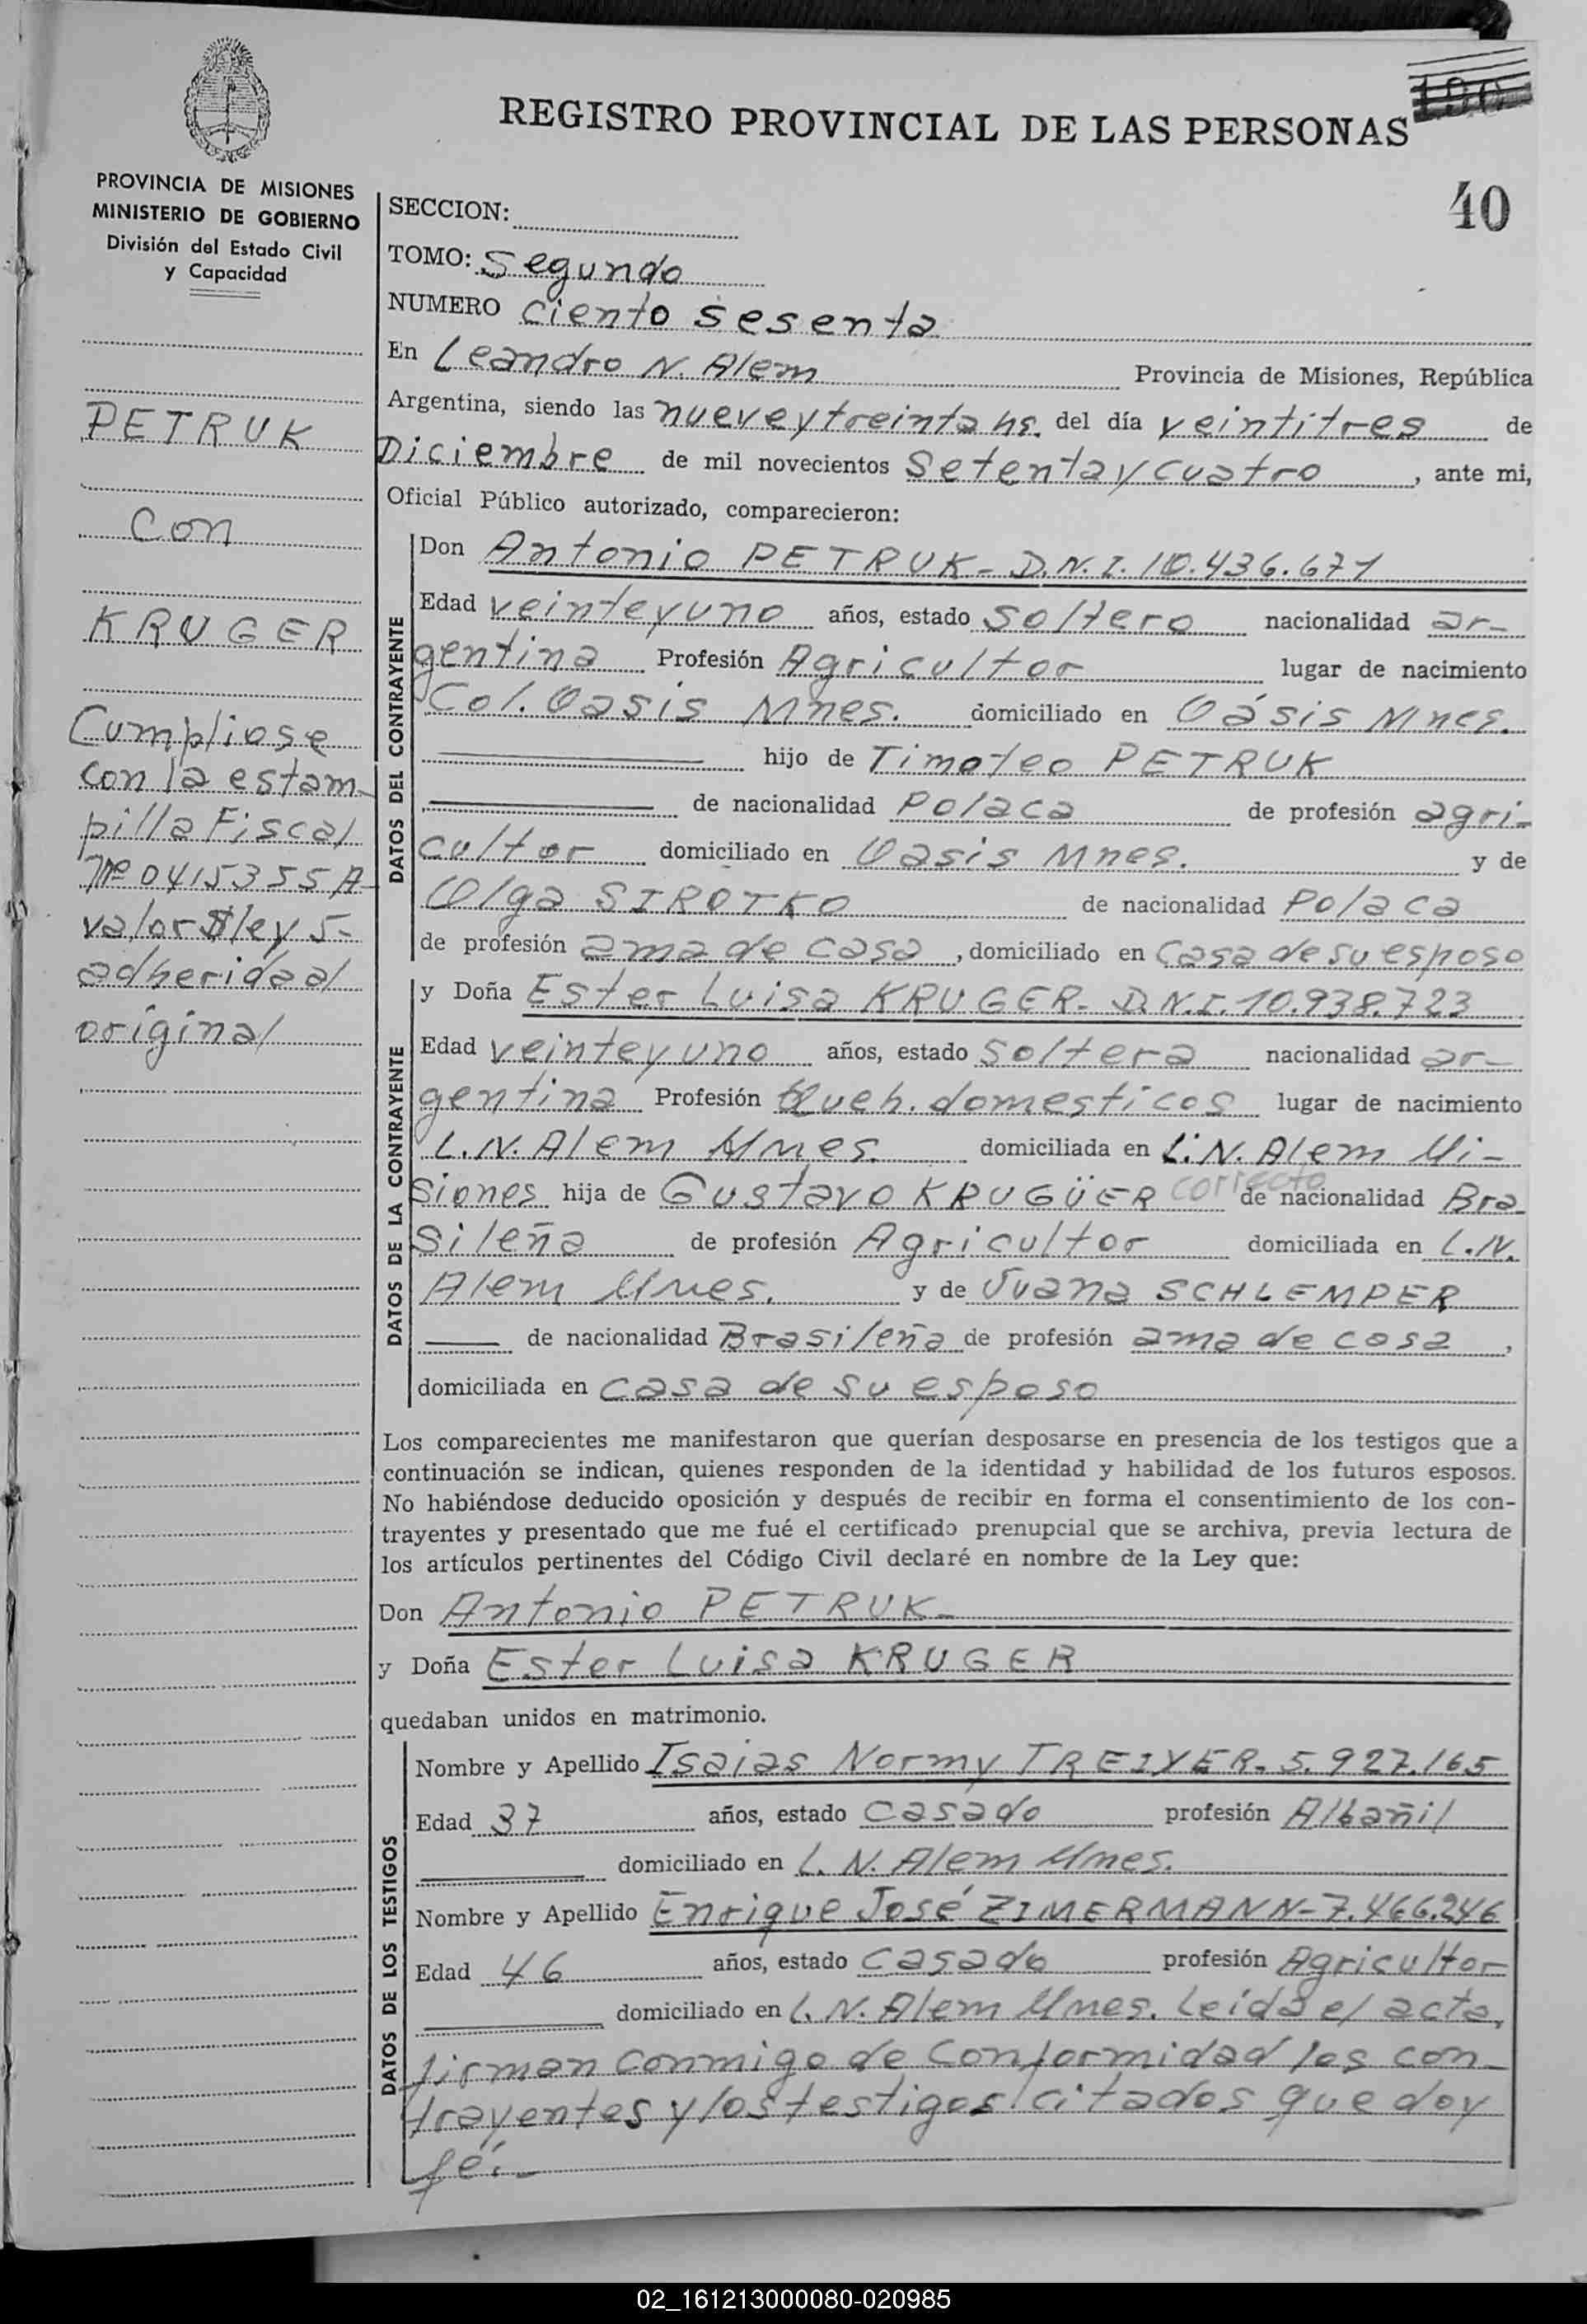 190
REGISTRO PROVINCIAL DE LAS PERSONAS
40
PROVINCIA DE MISIONES
MINISTERIO DE GOBIERNO
División del Estado Civil
y Capacidad
PETRUK
con
KRUGER
Cumpliose
con la estam-
pilla Fiscal
Nº 0415355A-
valor $ley 5-
adherida al
original
SECCION:
TOMO: Segundo
NUMERO ciento sesenta
En Leandro N. Alem Provincia de Misiones, República
Argentina, siendo las nueve y treinta hs. del día veintitres de
Diciembre de mil novecientos Setenta y cuatro, ante mi,
Oficial Público autorizado, comparecieron:
DATOS DEL CONTRAYENTE
Don Antonio PETRUK- D.N.I. 10.436.671
Edad veinte y uno años, estado Soltero nacionalidad ar-
gentina Profesión Agricultor lugar de nacimiento
Col. Oasis Mnes. domiciliado en Oásis Mnes.
hijo de Timoteo PETRUK
de nacionalidad Polaca de profesión agri-
cultor domiciliado en Oasis Mnes. y de
Olga SIROTKO de nacionalidad Polaca
de profesión ama de casa, domiciliado en Casa de su esposo
DATOS DE LA CONTRAYENTE
y Doña Ester Luisa KRUGER- D.N.I. 10.938.723
Edad veinte y uno años, estado Soltera nacionalidad ar-
gentina Profesión Queh. domesticos lugar de nacimiento
L.N. Alem Mnes. domiciliada en L.N. Alem Mi-
siones hija de Gustavo KRUGÜER correcto de nacionalidad Bra-
Sileña de profesión Agricultor domiciliada en L.N.
Alem Mnes. y de Juana SCHLEMPER
de nacionalidad Brasileña de profesión ama de casa,
domiciliada en casa de su esposo
Los comparecientes me manifestaron que querían desposarse en presencia de los testigos que a
continuación se indican, quienes responden de la identidad y habilidad de los futuros esposos.
No habiéndose deducido oposición y después de recibir en forma el consentimiento de los con-
trayentes y presentado que me fué el certificado prenupcial que se archiva, previa lectura de
los artículos pertinentes del Código Civil declaré en nombre de la Ley que:
Don Antonio PETRUK-
y Doña Ester Luisa KRUGER
quedaban unidos en matrimonio.
DATOS DE LOS TESTIGOS
Nombre y Apellido Isaias Normy TREIYER- 5.927.165
Edad 37 años, estado Casado profesión Albañil
domiciliado en L. N. Alem Mnes.
Nombre y Apellido Enrique José ZIMERMANN-7.466.246
Edad 46 años, estado Casado profesión Agricultor
domiciliado en L. N. Alem Mnes. Leida el acta,
firman conmigo de conformidad los con-
trayentes y los testigos citados que doy
fé.-
02_161213000080-020985